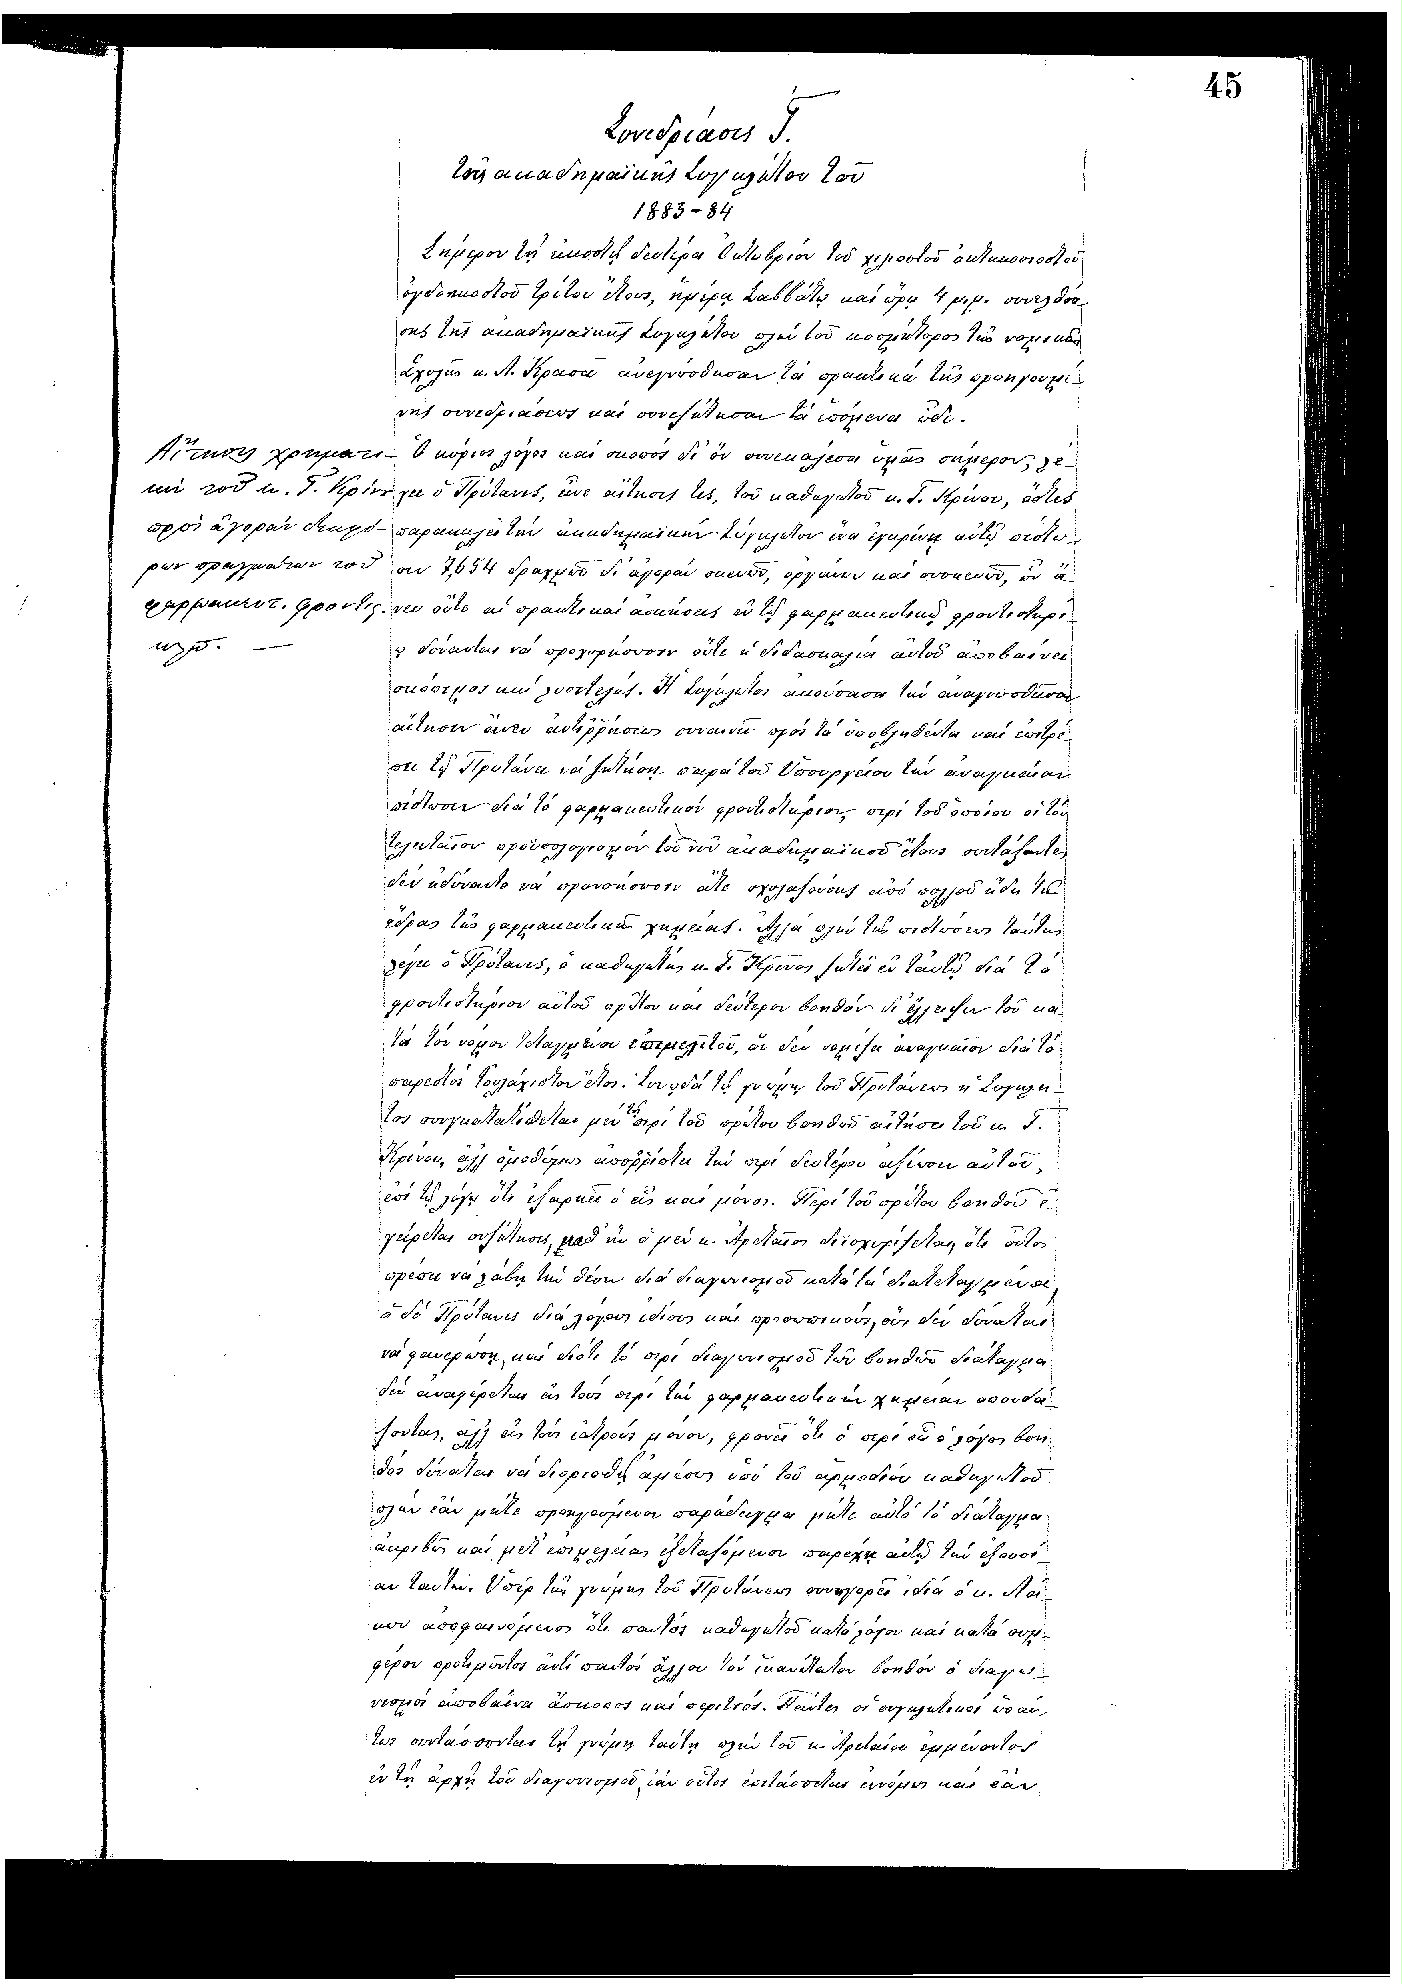 45
Συνεδρίασις Γ̅.
τῆς ἀκαδημαϊκῆς Συγκλήτου τοῦ
1883-84
Σήμερον τῇ εἰκοστῇ δευτέρᾳ Ὀκτωβρίου τοῦ χιλιοστοῦ ὀκτακοσιοστοῦ
ὀγδοηκοστοῦ τρίτου ἔτους, ἡμέρᾳ Σαββάτῳ καὶ ὥρᾳ 4 μ.μ. συνελθού-
σης τῆς ἀκαδημαϊκῆς Συγκλήτου πλὴν τοῦ κοσμήτορος τῆς νομικῆς
Σχολῆς κ. Α. Κρασσᾶ ἀνεγνώσθησαν τὰ πρακτικὰ τῆς προηγουμέ-
νης συνεδριάσεως καὶ συνεζήτησαν τὰ ἑπόμενα ὧδε.
Αἴτησις χρηματι-
κὴ τοῦ κ. Γ. Κρίνου
πρὸς ἀγορὰν διαφό-
ρων πραγμάτων τοῦ
φαρμακευτ. φροντισ.
κλπ. —
Ὁ κύριος λόγος καὶ σκοπὸς δι' ὃν συνεκάλεσα ὑμᾶς σήμερον, λέ-
γει ὁ Πρύτανις, εἶνε αἴτησίς τις τοῦ καθηγητοῦ κ. Γ. Κρίνου, ὅστις
παρακαλεῖ τὴν ἀκαδημαϊκὴν Σύγκλητον ἵνα ἐγκρίνῃ αὐτῷ πίστω-
σιν 7,654 δραχμῶν δι' ἀγορὰν σκευῶν, ὀργάνων καὶ συσκευῶν, ὧν ἄ-
νευ οὔτε αἱ πρακτικαὶ ἀσκήσεις ἐν τῷ φαρμακευτικῷ φροντιστηρί-
ῳ δύνανται νὰ προχωρήσωσιν οὔτε ἡ διδασκαλία αὐτοῦ ἀποβαίνει
σκόπιμος καὶ λυσιτελής. Ἡ Σύγκλητος ἀκούσασα τὴν ἀναγνωσθεῖσαν
αἴτησιν ἄνευ ἀντιρρήσεως συναινεῖ πρὸς τὰ ὑποβληθέντα καὶ ἐπιτρέ-
πει τῷ Πρυτάνει νὰ ζητήσῃ παρὰ τοῦ Ὑπουργείου τὴν ἀναγκαίαν
πίστωσιν διὰ τὸ φαρμακευτικὸν φροντιστήριον, περὶ τοῦ ὁποίου οἱ τὸν
τελευταῖον προϋπολογισμὸν τοῦ νῦν ἀκαδημαϊκοῦ ἔτους συντάξαντες
δὲν ἠδύναντο νὰ προνοήσωσιν ἅτε σχολαζούσης ἀπὸ πολλοῦ ἤδη τῆς
ἕδρας τῆς φαρμακευτικῆς χημείας. Ἀλλὰ πλὴν τῆς πιστώσεως ταύτης
λέγει ὁ Πρύτανις, ὁ καθηγητὴς κ. Γ. Κρίνος ζητεῖ ἐν ταὐτῷ διὰ τὸ
φροντιστήριον αὐτοῦ πρῶτον καὶ δεύτερον βοηθὸν δι' ἔλλειψιν τοῦ κα-
τὰ τὸν νόμον τεταγμένου ἐπιμελητοῦ, ὃν δὲν νομίζει ἀναγκαῖον διὰ τὸ
παρεστὸς τοὐλάχιστον ἔτος. Συνῳδὰ τῇ γνώμῃ τοῦ Πρυτάνεως ἡ Σύγκλη-
τος συγκατατίθεται μὲν τῇ περὶ τοῦ πρώτου βοηθοῦ αἰτήσει τοῦ κ. Γ.
Κρίνου, ἀλλ' ὁμοθύμως ἀπορρίπτει τὴν περὶ δευτέρου ἀξίωσιν αὐτοῦ,
ἐπὶ τῷ λόγῳ ὅτι ἐξαρκεῖ ὁ εἷς καὶ μόνος. Περὶ τοῦ πρώτου βοηθοῦ ἐ-
γείρεται συζήτησις, καθ' ἣν ὁ μὲν κ. Ἀρεταῖος διϊσχυρίζεται, ὅτι οὗτος
πρέπει νὰ λάβῃ τὴν θέσιν διὰ διαγωνισμοῦ κατὰ τὰ διατεταγμένα,
ὁ δὲ Πρύτανις διὰ λόγους ἰδίους καὶ προσωπικούς, οὓς δὲν δύναται
νὰ φανερώσῃ, καὶ διότι τὸ περὶ διαγωνισμοῦ τῶν βοηθῶν διάταγμα
δὲν ἀναφέρεται εἰς τοὺς περὶ τὴν φαρμακευτικὴν χημείαν σπουδά-
ζοντας, ἀλλ' εἰς τοὺς ἰατροὺς μόνον, φρονεῖ ὅτι ὁ περὶ οὗ ὁ λόγος βοη-
θὸς δύναται νὰ διορισθῇ ἀμέσως ὑπὸ τοῦ ἁρμοδίου καθηγητοῦ
πλὴν ἐὰν μήτε προηγούμενον παράδειγμα μήτε αὐτὸ τὸ διάταγμα
ἀκριβῶς καὶ μετ' ἐπιμελείας ἐξεταζόμενον παρέχῃ αὐτῷ τὴν ἐξουσί-
αν ταύτην. Ὑπὲρ τῆς γνώμης τοῦ Πρυτάνεως συνηγορεῖ ἰδίᾳ ὁ κ. Λά-
κων ἀποφαινόμενος ὅτι παντὸς καθηγητοῦ κατὰ λόγον καὶ κατὰ συμ-
φέρον προτιμῶντος ἀντὶ παντὸς ἄλλου τὸν ἱκανώτατον βοηθὸν ὁ διαγω-
νισμὸς ἀποβαίνει ἄσκοπος καὶ περιττός. Πάντες οἱ συγκλητικοὶ ὡσαύ-
τως συντάσσονται τῇ γνώμῃ ταύτῃ πλὴν τοῦ κ. Ἀρεταίου ἐμμένοντος
ἐν τῇ ἀρχῇ τοῦ διαγωνισμοῦ, ἐὰν οὗτος ἐπιτάσσεται ἐννόμως καὶ ἐὰν